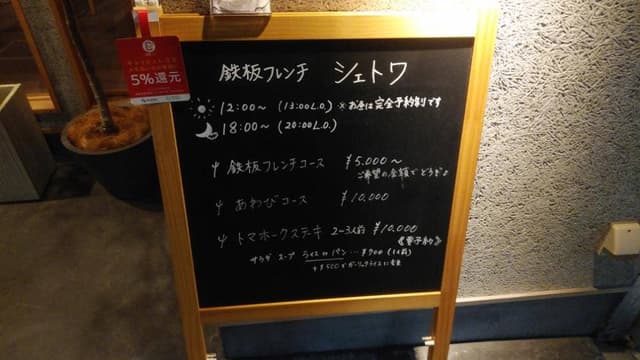 キャッシュレスで
5%還元
鉄板フレンチ シェトワ
12:00～ (13:00L.O.) ※お昼は完全予約制です
18:00～ (20:00L.O.)
鉄板フレンチコース ¥5,000～
ご希望の金額でどうぞ♪
あわびコース ¥10,000
トマホークステキ 2-3人前 ¥10,000
《要予約》
サラダ スープ ライス or パン … ¥900 (1人前)
+¥500でガーリックライスに変更